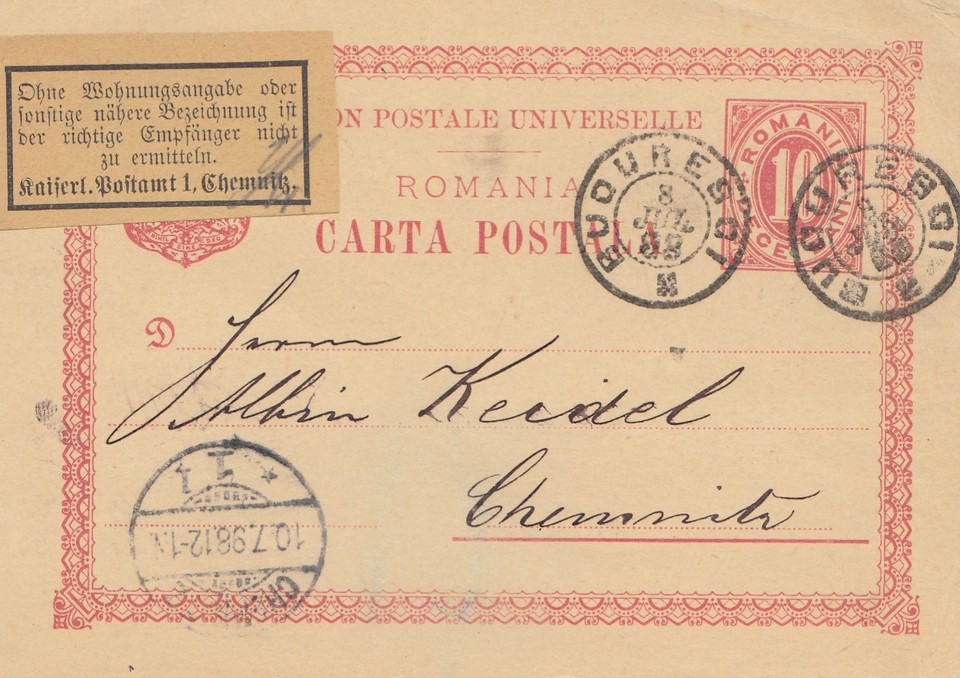 Ohne Wohnungsangabe oder
sonstige nähere Bezeichnung ist
der richtige Empfänger nicht
zu ermitteln.
Kaiserl. Postamt 1, Chemnitz.
ON POSTALE UNIVERSELLE
ROMANIA
CARTA POSTALA
ROMANIA
10
BUCURESCI
8
JUL
98
BUCURESCI
D
Herrn
Albin Keidel
Chemnitz
10.7.98.12-1.N.